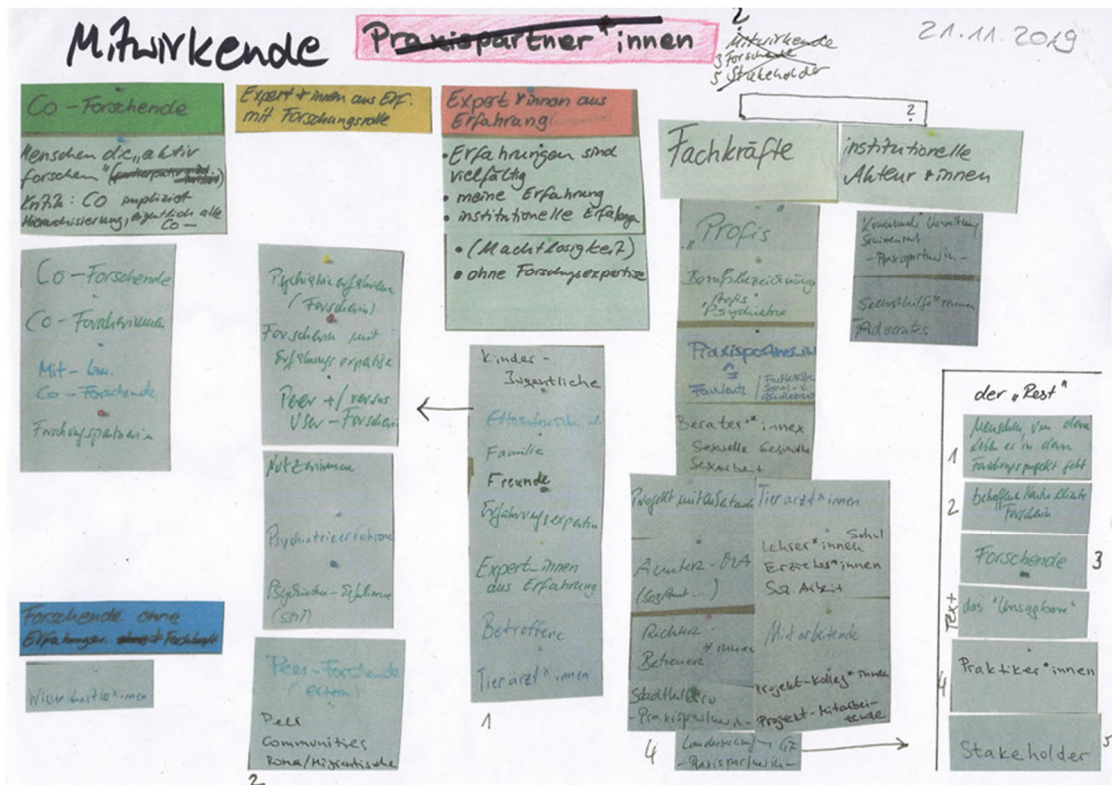 Mitwirkende
Praxispartner*innen
?
Mitwirkende
3 Forschende
5 Stakeholder
21.11.2019
Co-Forschende
Menschen die "aktiv
forschen"
Kritik: Co impliziert
Hierarchisierung, eigentlich alle
Co-
Co-Forschende
Co-Forscherinnen
Mit- bzw.
Co-Forschende
Forschungspartnerin
Forschende ohne
Erfahrungen
Wissenschaftler*innen
Expert*innen aus Erf.
mit Forschungsrolle
Psychiatrieerfahrene
(Forscherin)
Forscherin mit
Erfahrungsexpertise
Peer +/versus
User-Forscherin
Nutzerinnen
Psychiatrieerfahrene
Psychiatrie-Erfahrene
Peer-Forschende
(extern)
Peer
Communities
Roma/Migrantische
2
Expert*innen aus
Erfahrung
• Erfahrungen sind
vielfältig
• meine Erfahrung
• institutionelle Erfahrung
• (Machtlosigkeit)
• ohne Forschungsexpertise
Kinder-
Jugendliche
Elternforscher
Familie
Freunde
Erfahrungsexpertin
Expert-innen
aus Erfahrung
Betroffene
Tierarzt*innen
1
?
Fachkräfte
institutionelle
Akteur*innen
"Profis
Berufsbezeichnung
"Profis"
Psychiatrie
Praxispartner.in
=
Fachleute
Fachkräfte
Berater**innen
Sexuelle Gesundh
Sexarbeit
Projektmitarbeitende
Ämter - ÖVA
(SozAmt...)
Richter-
Betreuer *innen
Stadtkultur
-Praxispartnerin-
4
-Praxispartnerin-
Tierarzt*innen
Schul
Lehrer*innen
Erzieher*innen
Soz. Arbeit
Mitarbeitende
Projekt-Kolleg*innen
Projekt-Mitarbei-
tende
Kommunale Verwaltung
-Praxispartnerin-
Selbsthilfe*innen
Advocates
der "Rest"
1
Menschen, um deren
Leben es in dem
Forschungsprojekt geht
2
Forscherin
Forschende
3
Text
das "Unsagbare"
4
Praktiker*innen
Stakeholder
5